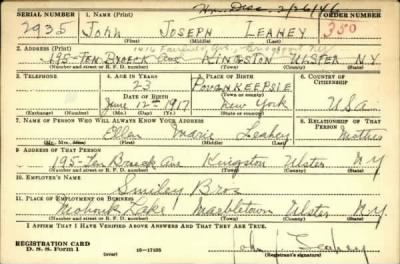 Hon. Disc. 2/26/46
SERIAL NUMBER 1. NAME (Print) ORDER NUMBER
2935 John Joseph Leahey 350
(First) (Middle) (Last)
2. ADDRESS (Print) 1416 Fairfield Ave., Bridgeport
195-Ten Broeck Ave Kingston Ulster N.Y.
(Number and street or R. F. D. number) (Town) (County) (State)
3. TELEPHONE 4. AGE IN YEARS 5. PLACE OF BIRTH 6. COUNTRY OF CITIZENSHIP
23 Poughkeepsie
DATE OF BIRTH (Town or county)
June 12th 1917 New York U.S.A.
(Exchange) (Number) (Mo.) (Day) (Yr.) (State or country)
7. NAME OF PERSON WHO WILL ALWAYS KNOW YOUR ADDRESS 8. RELATIONSHIP OF THAT PERSON
Ellen Marie Leahey Mother
(Mr., Mrs., Miss) (First) (Middle) (Last)
9. ADDRESS OF THAT PERSON
195-Ten Broeck Ave Kingston Ulster N.Y.
(Number and street or R. F. D. number) (Town) (County) (State)
10. EMPLOYER'S NAME
Smiley Bros
11. PLACE OF EMPLOYMENT OR BUSINESS
Mohonk Lake Marbletown Ulster N.Y.
(Number and street or R. F. D. number) (Town) (County) (State)
I AFFIRM THAT I HAVE VERIFIED ABOVE ANSWERS AND THAT THEY ARE TRUE.
REGISTRATION CARD
D. S. S. Form 1 (over) 16-17105 John J Leahey
(Registrant's signature)